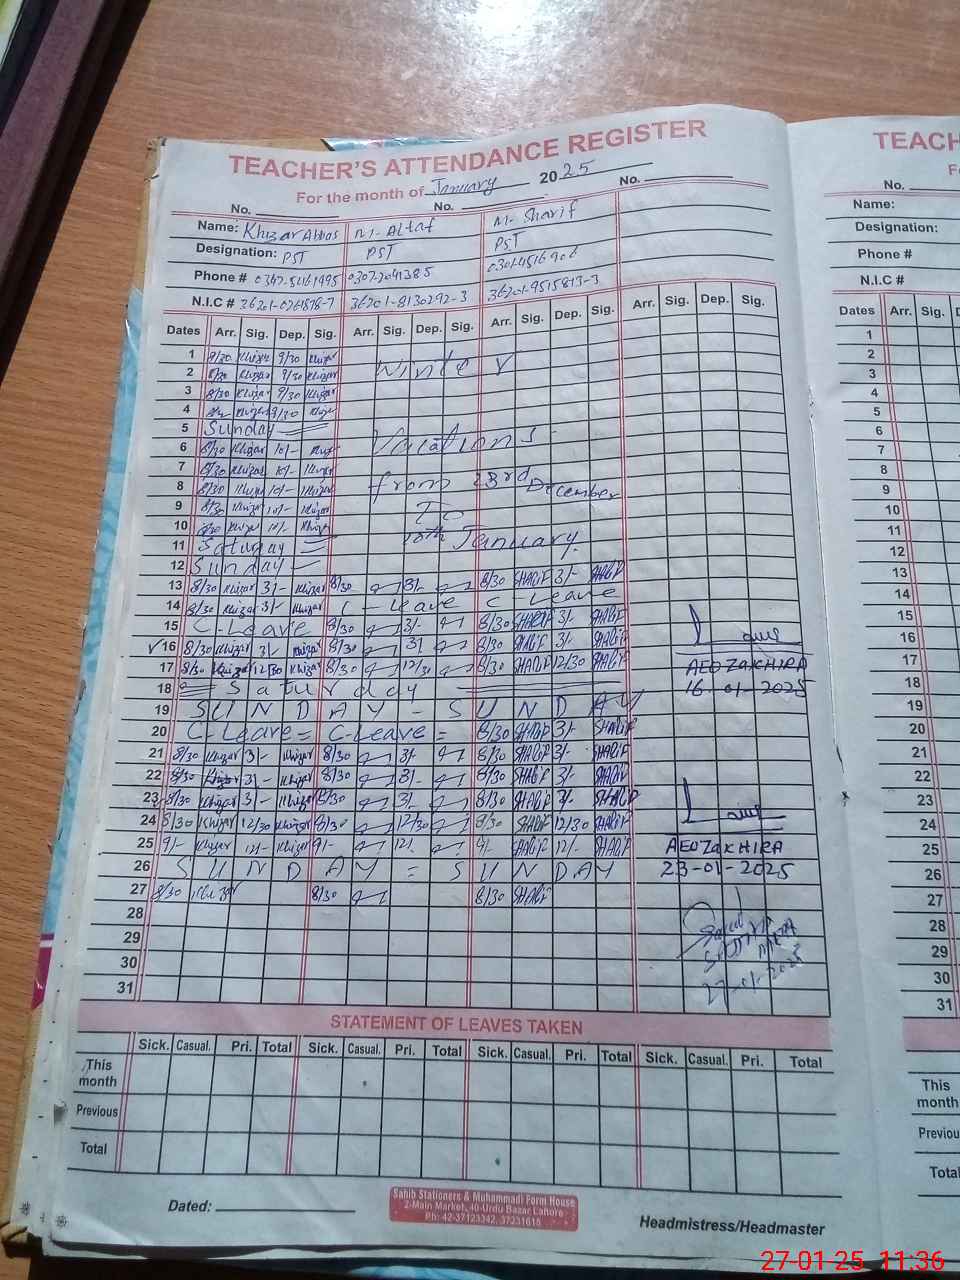 TEACHER'S ATTENDANCE REGISTER
For the month of January 2025
No. No. No.
Name: Khizar Abbas M. Altaf M. Sharif
Designation: PST PST PST
Phone # 0307-2041385
N.I.C # 36201-8130292-3 36201-9515813-3
Dates Arr. Sig. Dep. Sig. Arr. Sig. Dep. Sig. Arr. Sig. Dep. Sig. Arr. Sig. Dep. Sig.
1 8/30 Khizar 9/30 Khizar Winter
2 8/30 Khizar 9/30 Khizar
3 8/30 Khizar 9/30 Khizar
4 Khizar 9/30 Khizar
5 Sunday
6 8/30 Khizar 10/- Khizar Vacations
7 8/30 Khizar 10/- Khizar
8 8/30 Khizar 10/- Khizar from 23rd December
9 8/30 Khizar 10/- Khizar To
10 8/30 Khizar 10/- Khizar 10th January.
11 Saturday
12 Sunday
13 8/30 Khizar 3/- Khizar 8/30 3/- 8/30 SHARIF 3/- SHARIF
14 8/30 Khizar 3/- Khizar C-Leave C-Leave
15 C-Leave 8/30 3/- 8/30 SHARIF 3/- SHARIF
16 8/30 Khizar 3/- Khizar 8/30 3/- 8/30 SHARIF 3/- SHARIF
17 8/30 Khizar 12/30 Khizar 8/30 12/30 8/30 SHARIF 12/30 SHARIF
AEO ZAKHIRA
16-01-2025
18 Saturday
19 SUNDAY - SUNDAY
20 C-Leave = C-Leave = 8/30 SHARIF 3/- SHARIF
21 8/30 Khizar 3/- Khizar 8/30 3/- 8/30 SHARIF 3/- SHARIF
22 8/30 Khizar 3/- Khizar 8/30 3/- 8/30 SHARIF 3/- SHARIF
23 8/30 Khizar 3/- Khizar 8/30 3/- 8/30 SHARIF 3/- SHARIF
24 8/30 Khizar 12/30 Khizar 8/30 12/30 8/30 SHARIF 12/30 SHARIF
25 9/- Khizar 12/- Khizar 9/- 12/- 9/- SHARIF 12/- SHARIF
AEO ZAKHIRA
23-01-2025
26 SUNDAY = SUNDAY
27 8/30 Khizar 8/30 8/30 SHARIF
28
29
30
31
27-01-2025
STATEMENT OF LEAVES TAKEN
Sick. Casual. Pri. Total Sick. Casual. Pri. Total Sick. Casual. Pri. Total Sick. Casual. Pri. Total
This month
Previous
Total
Dated:
Sahib Stationers & Muhammadi Form House
2-Main Market, 40-Urdu Bazar Lahore
Ph: 42-37123342, 37231615
Headmistress/Headmaster
No.
Name:
Designation:
Phone #
N.I.C #
Dates Arr. Sig.
1
2
3
4
5
6
7
8
9
10
11
12
13
14
15
16
17
18
19
20
21
22
23
24
25
26
27
28
29
30
31
This month
Previous
Total
27-01-25 11:36